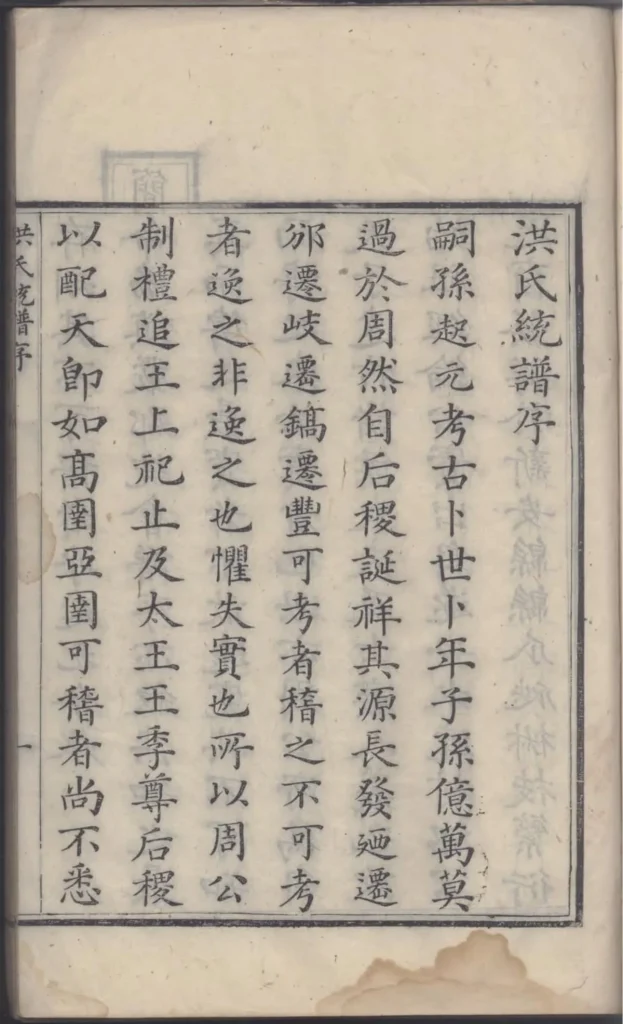 洪氏統譜序
嗣孫起元考古卜世卜年子孫億萬莫
過於周然自后稷誕祥其源長發廼遷
邠遷岐遷鎬遷豐可考者稽之不可考
者逸之非逸之也懼失實也所以周公
制禮追王上祀止及太王王季尊后稷
以配天卽如高圉亞圉可稽者尚不悉
洪氏統譜序
一